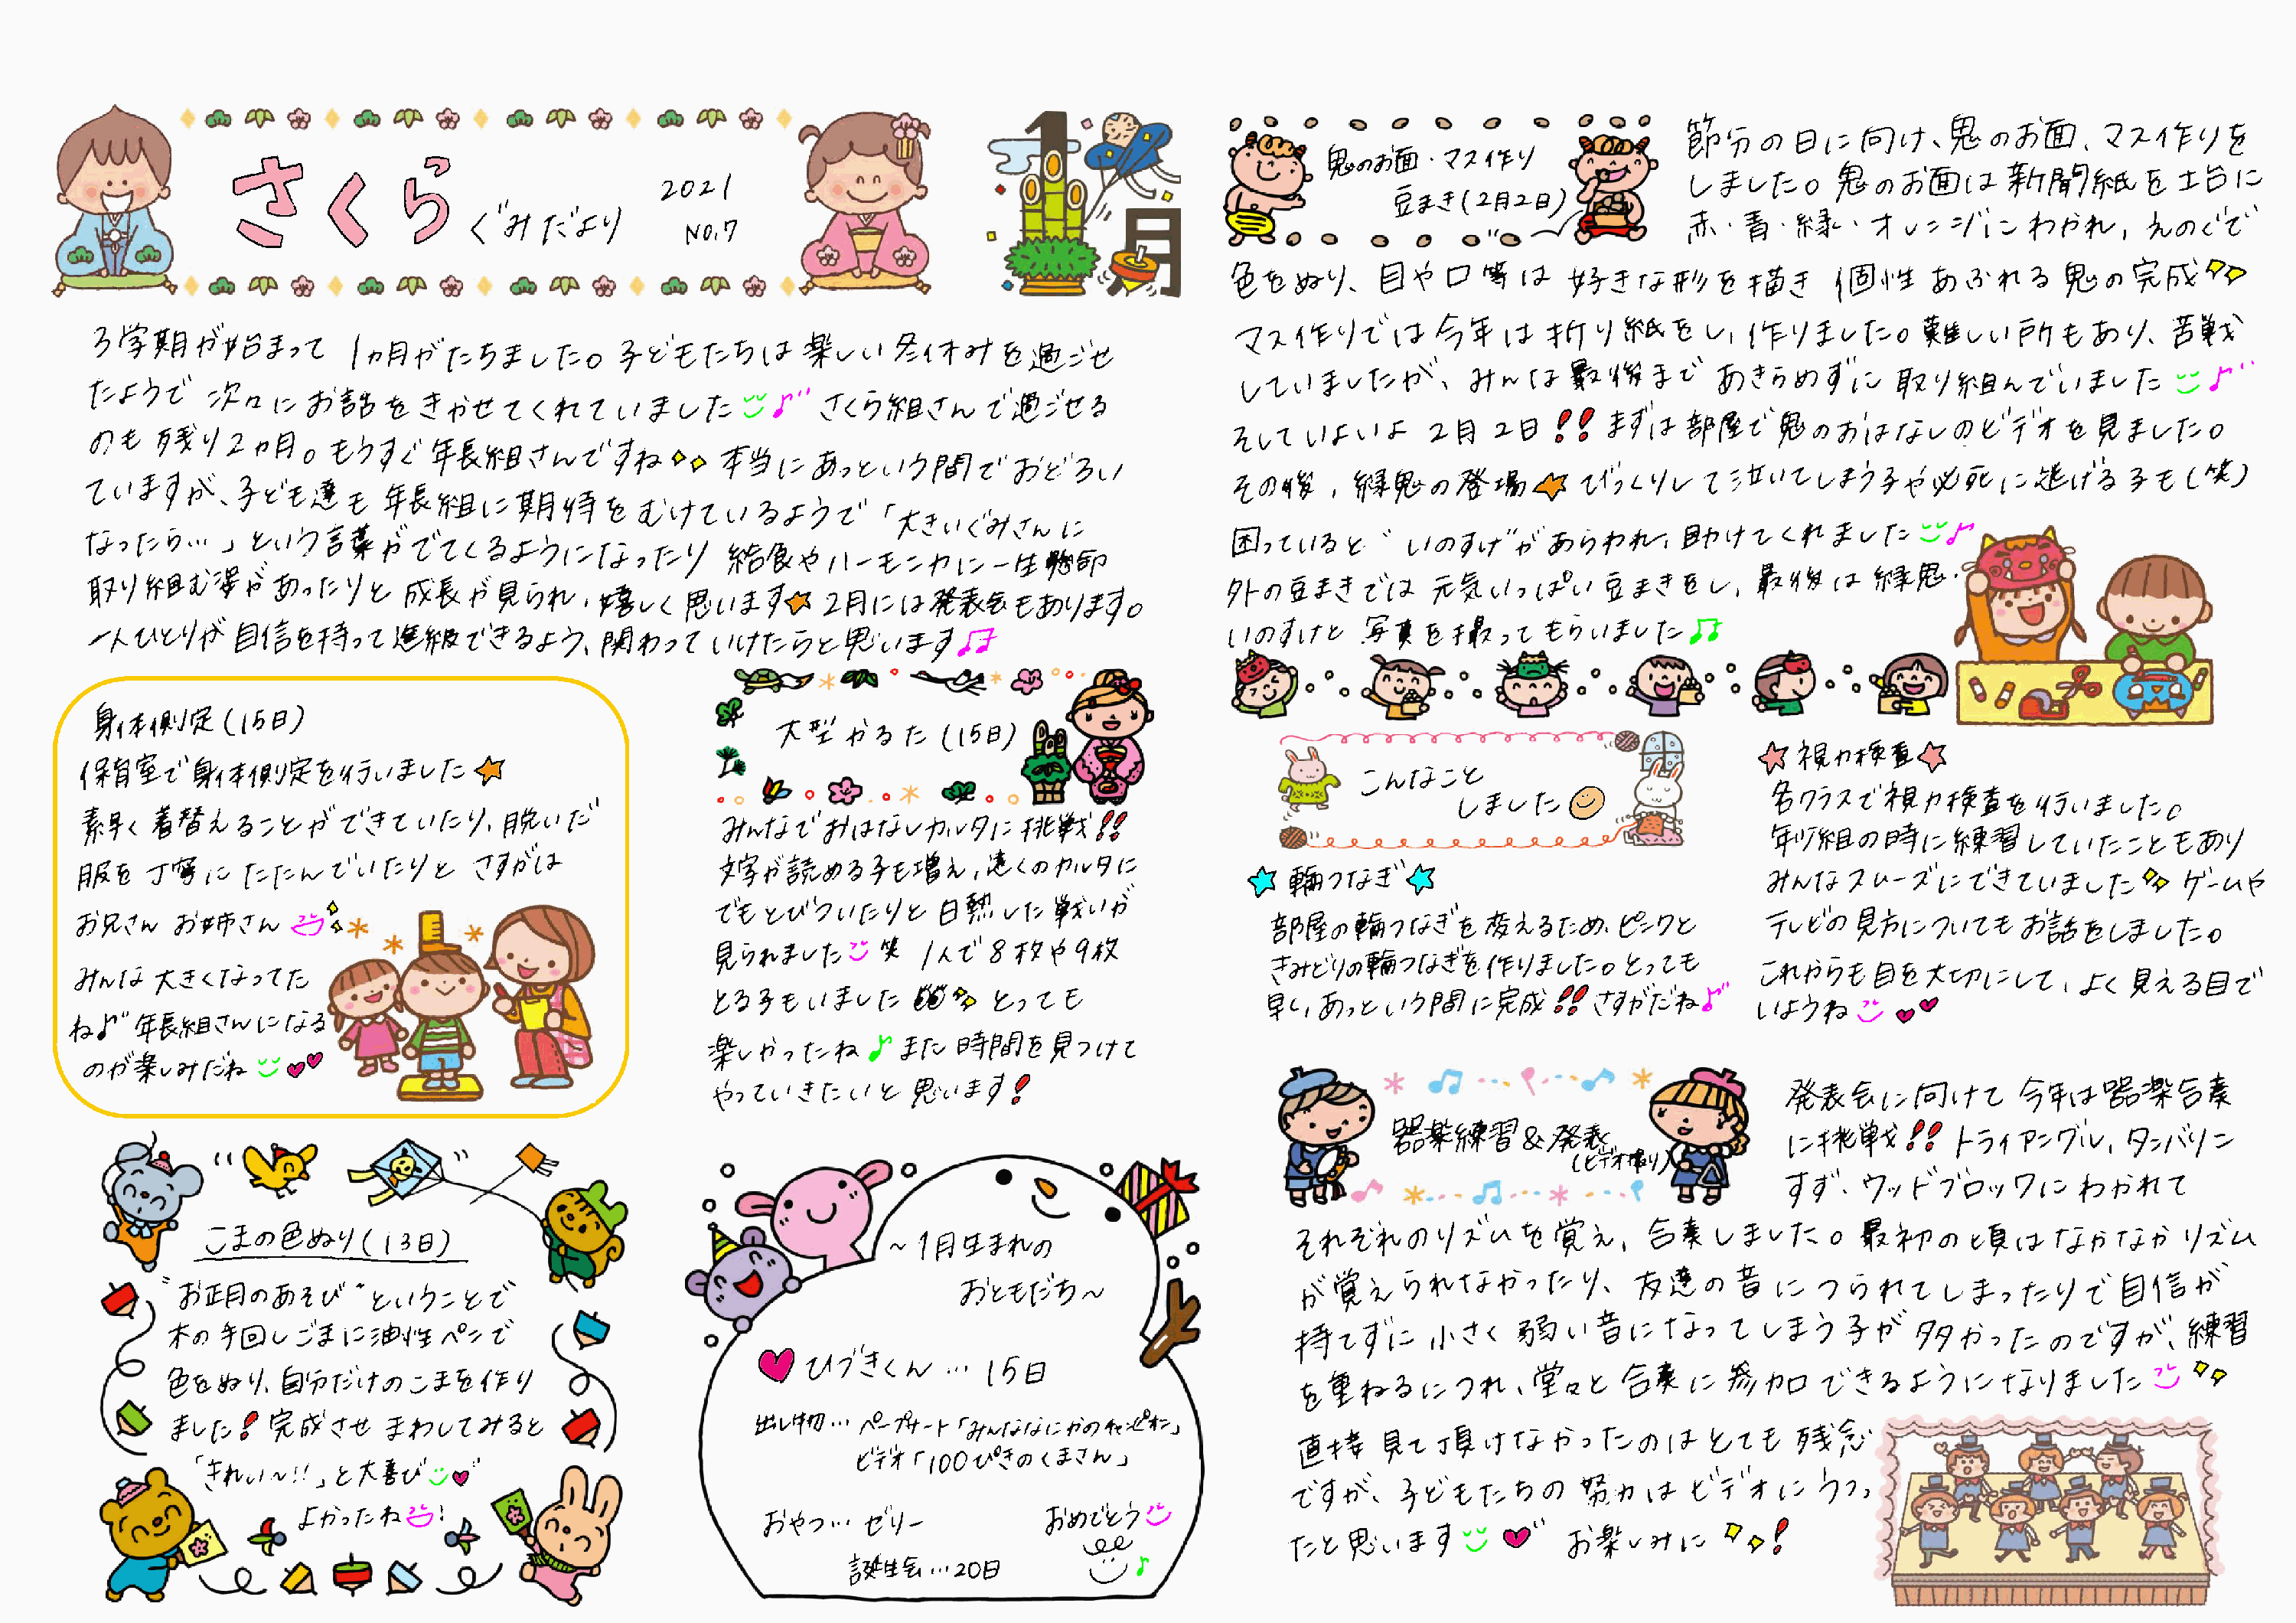 さくらぐみだより
2021
No.7
1月
3学期が始まって 1ヵ月がたちました。子どもたちは楽しい冬休みを過ごせ
たようで 次々にお話をきかせてくれていました♪ さくら組さんで過ごせる
のも 残り2ヵ月。もうすぐ年長組さんですね 本当にあっという間でおどろい
ていますが、子ども達も 年長組に期待をむけているようで「大きいぐみさんに
なったら…」という言葉がでてくるようになったり 給食やハーモニカに一生懸命
取り組む姿があったりと 成長が見られ、嬉しく思います☆ 2月には発表会もあります。
一人ひとりが自信を持って進級できるよう、関わっていけたらと思います♫
身体測定(15日)
保育室で身体測定を行いました☆
素早く着替えることができていたり、脱いだ
服を丁寧にたたんでいたりと さすがは
お兄さん お姉さん
みんな大きくなってた
ね♪ 年長組さんになる
のが楽しみだね
大型かるた (15日)
みんなでおはなしカルタに挑戦!!
文字が読める子も増え、遠くのカルタに
でもとびついたりと 白熱した戦いが
見られました 笑 1人で8枚や9枚
とる子もいました とっても
楽しかったね♪ また 時間を見つけて
やっていきたいと思います!
こまの色ぬり(13日)
"お正月のあそび"ということで
木の手回しごまに油性ペンで
色をぬり、自分だけのこまを作り
ました! 完成させ まわしてみると
「きれい~!!」と大喜び
よかったね
~1月生まれの
おともだち~
♥ひづきくん … 15日
出し物… ペープサート「みんななにかのチャンピオン」
ビデオ「100ぴきのくまさん」
おやつ… ゼリー
おめでとう
誕生会…20日
鬼のお面・マス作り
豆まき(2月2日)
節分の日に向け、鬼のお面、マス作りを
しました。鬼のお面は新聞紙を土台に
赤・青・緑・オレンジにわかれ、えのぐで
色をぬり、目や口等は 好きな形を描き 個性あふれる鬼の完成
マス作りでは今年は折り紙をし、作りました。難しい所もあり、苦戦
していましたが、みんな最後まで あきらめずに 取り組んでいました♪
そしていよいよ 2月2日!! まずは部屋で鬼のおはなしのビデオを見ました。
その後、緑鬼の登場☆ びっくりして泣いてしまう子や必死に逃げる子も(笑)
困っていると"いのすけ"があらわれ、助けてくれました♪
外の豆まきでは 元気いっぱい豆まきをし、最後は緑鬼・
いのすけと 写真を撮ってもらいました♫
こんなこと
しました
☆輪つなぎ☆
部屋の輪つなぎを変えるため、ピンクと
きみどりの輪つなぎを作りました。とっても
早く、あっという間に完成!! さすがだね♪
☆視力検査☆
各クラスで視力検査を行いました。
年少組の時に練習していたこともあり
みんなスムーズにできていました ゲームや
テレビの見方についてもお話をしました。
これからも目を大切にして、よく見える目で
いようね
器楽練習&発表
(ビデオ撮り)
発表会に向けて 今年は器楽合奏
に挑戦!! トライアングル、タンバリン
すず、ウッドブロックにわかれて
それぞれのリズムを覚え、合奏しました。最初の頃はなかなかリズム
が覚えられなかったり、友達の音につられてしまったりで自信が
持てずに 小さく弱い音になってしまう子が多かったのですが、練習
を重ねるにつれ、堂々と合奏に参加できるようになりました
直接見て頂けなかったのはとても残念
ですが、子どもたちの努力はビデオにうつっ
たと思います♥ お楽しみに!